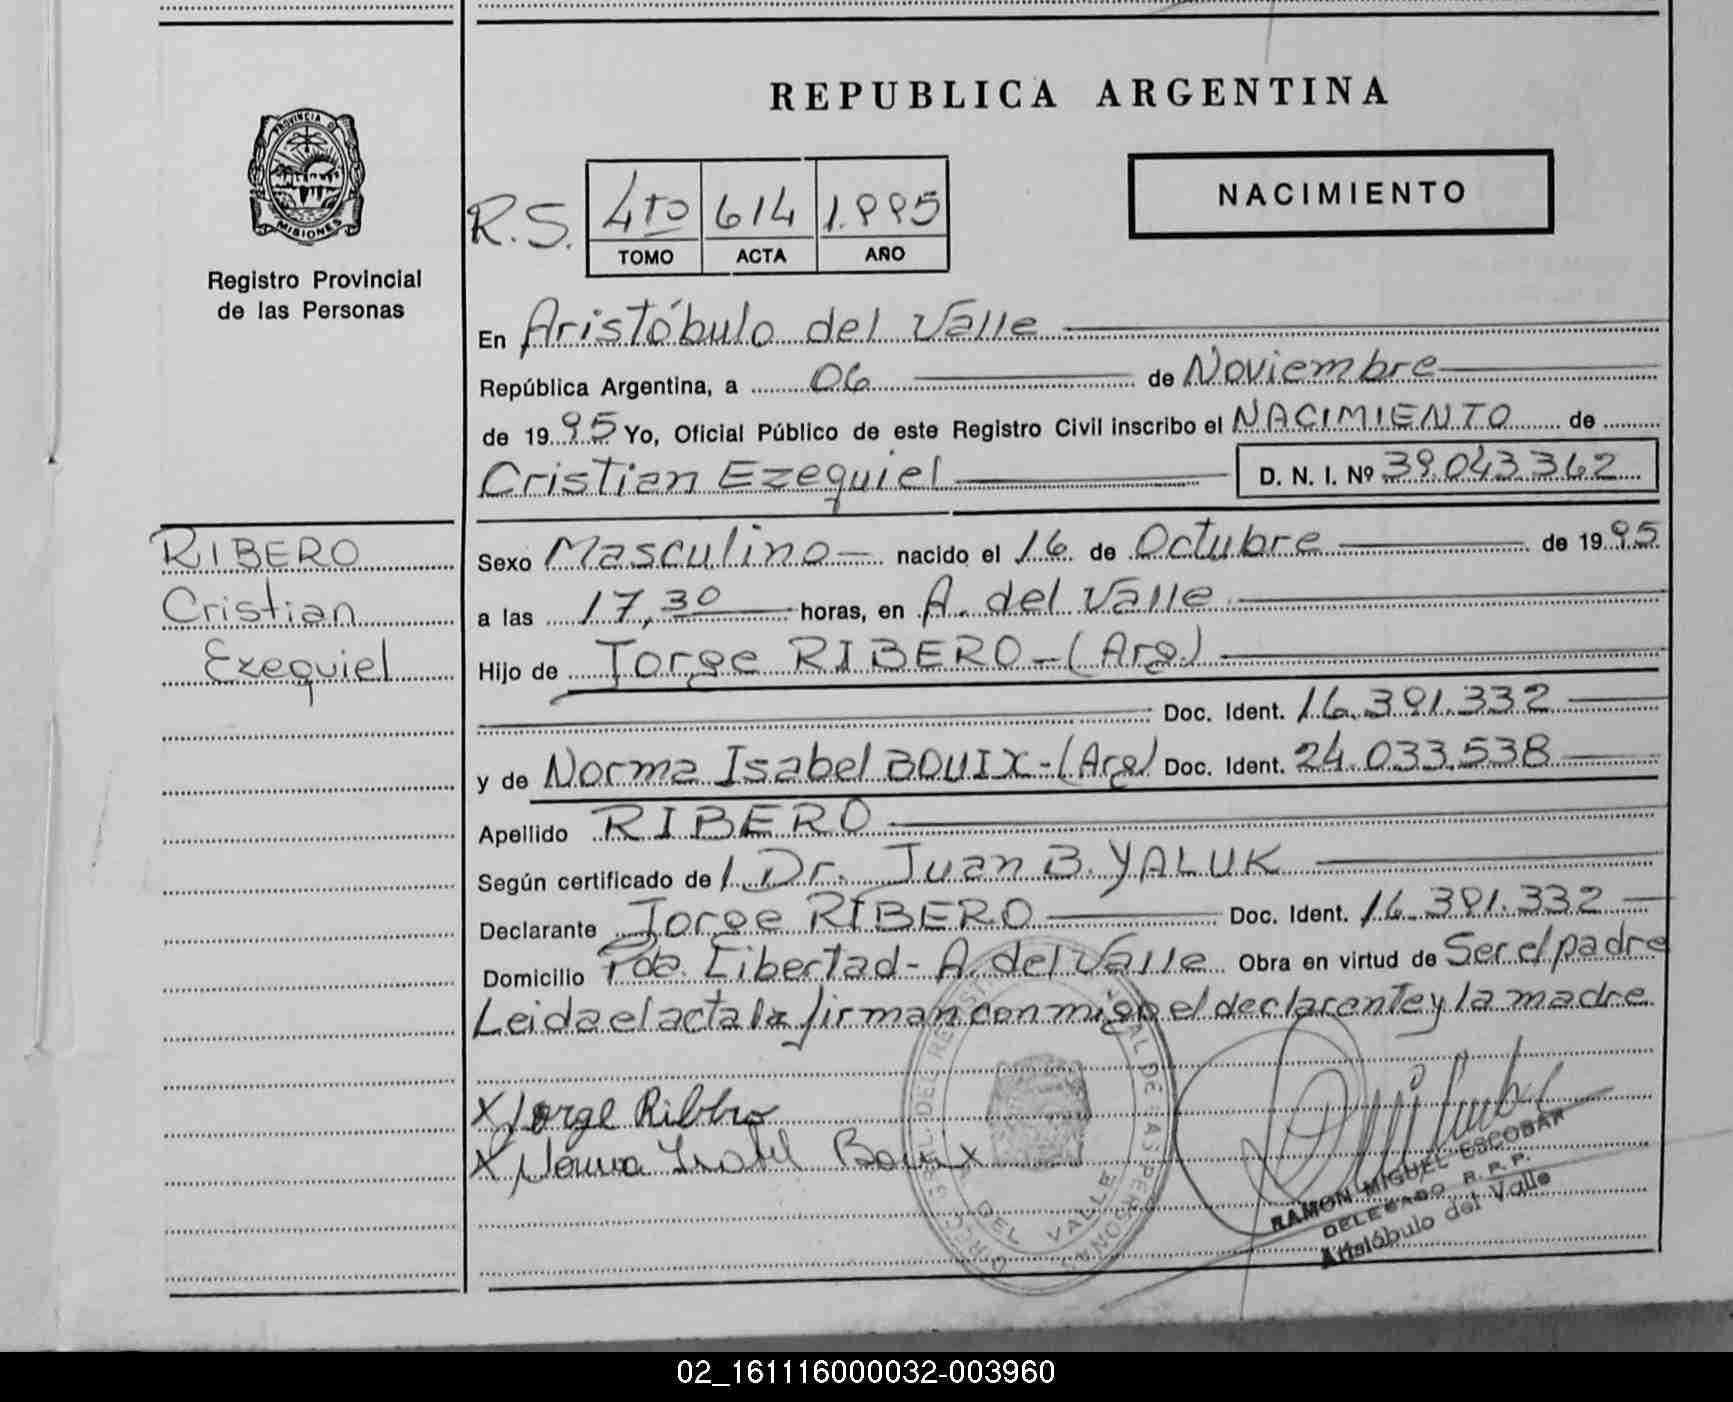 REPUBLICA ARGENTINA
PROVINCIA D
MISIONES
Registro Provincial
de las Personas
NACIMIENTO
R.S. 4to 614 1.995
TOMO ACTA AÑO
En Aristóbulo del Valle
República Argentina, a 06 de Noviembre
de 1995 Yo, Oficial Público de este Registro Civil inscribo el NACIMIENTO de
Cristian Ezequiel D. N. I. Nº 39.043.362
RIBERO
Cristian
Ezequiel
Sexo Masculino nacido el 16 de Octubre de 1995
a las 17,30 horas, en A. del Valle
Hijo de Jorge RIBERO-(Arg.)
Doc. Ident. 16.391.332
y de Norma Isabel BOUIX-(Arg) Doc. Ident. 24.033.538
Apellido RIBERO
Según certificado de Dr. Juan B. YALUK
Declarante Jorge RIBERO Doc. Ident. 16.391.332
Domicilio Pda. Libertad- A. del Valle Obra en virtud de Ser el padre
Leida el acta la firman conmigo el declarante y la madre
x Jorge Ribero
x Norma Isabel Bouix
DEL VALLE
RAMON MIGUEL ESCOBAR
DELEGADO R. P. P.
Aristóbulo del Valle
02_161116000032-003960